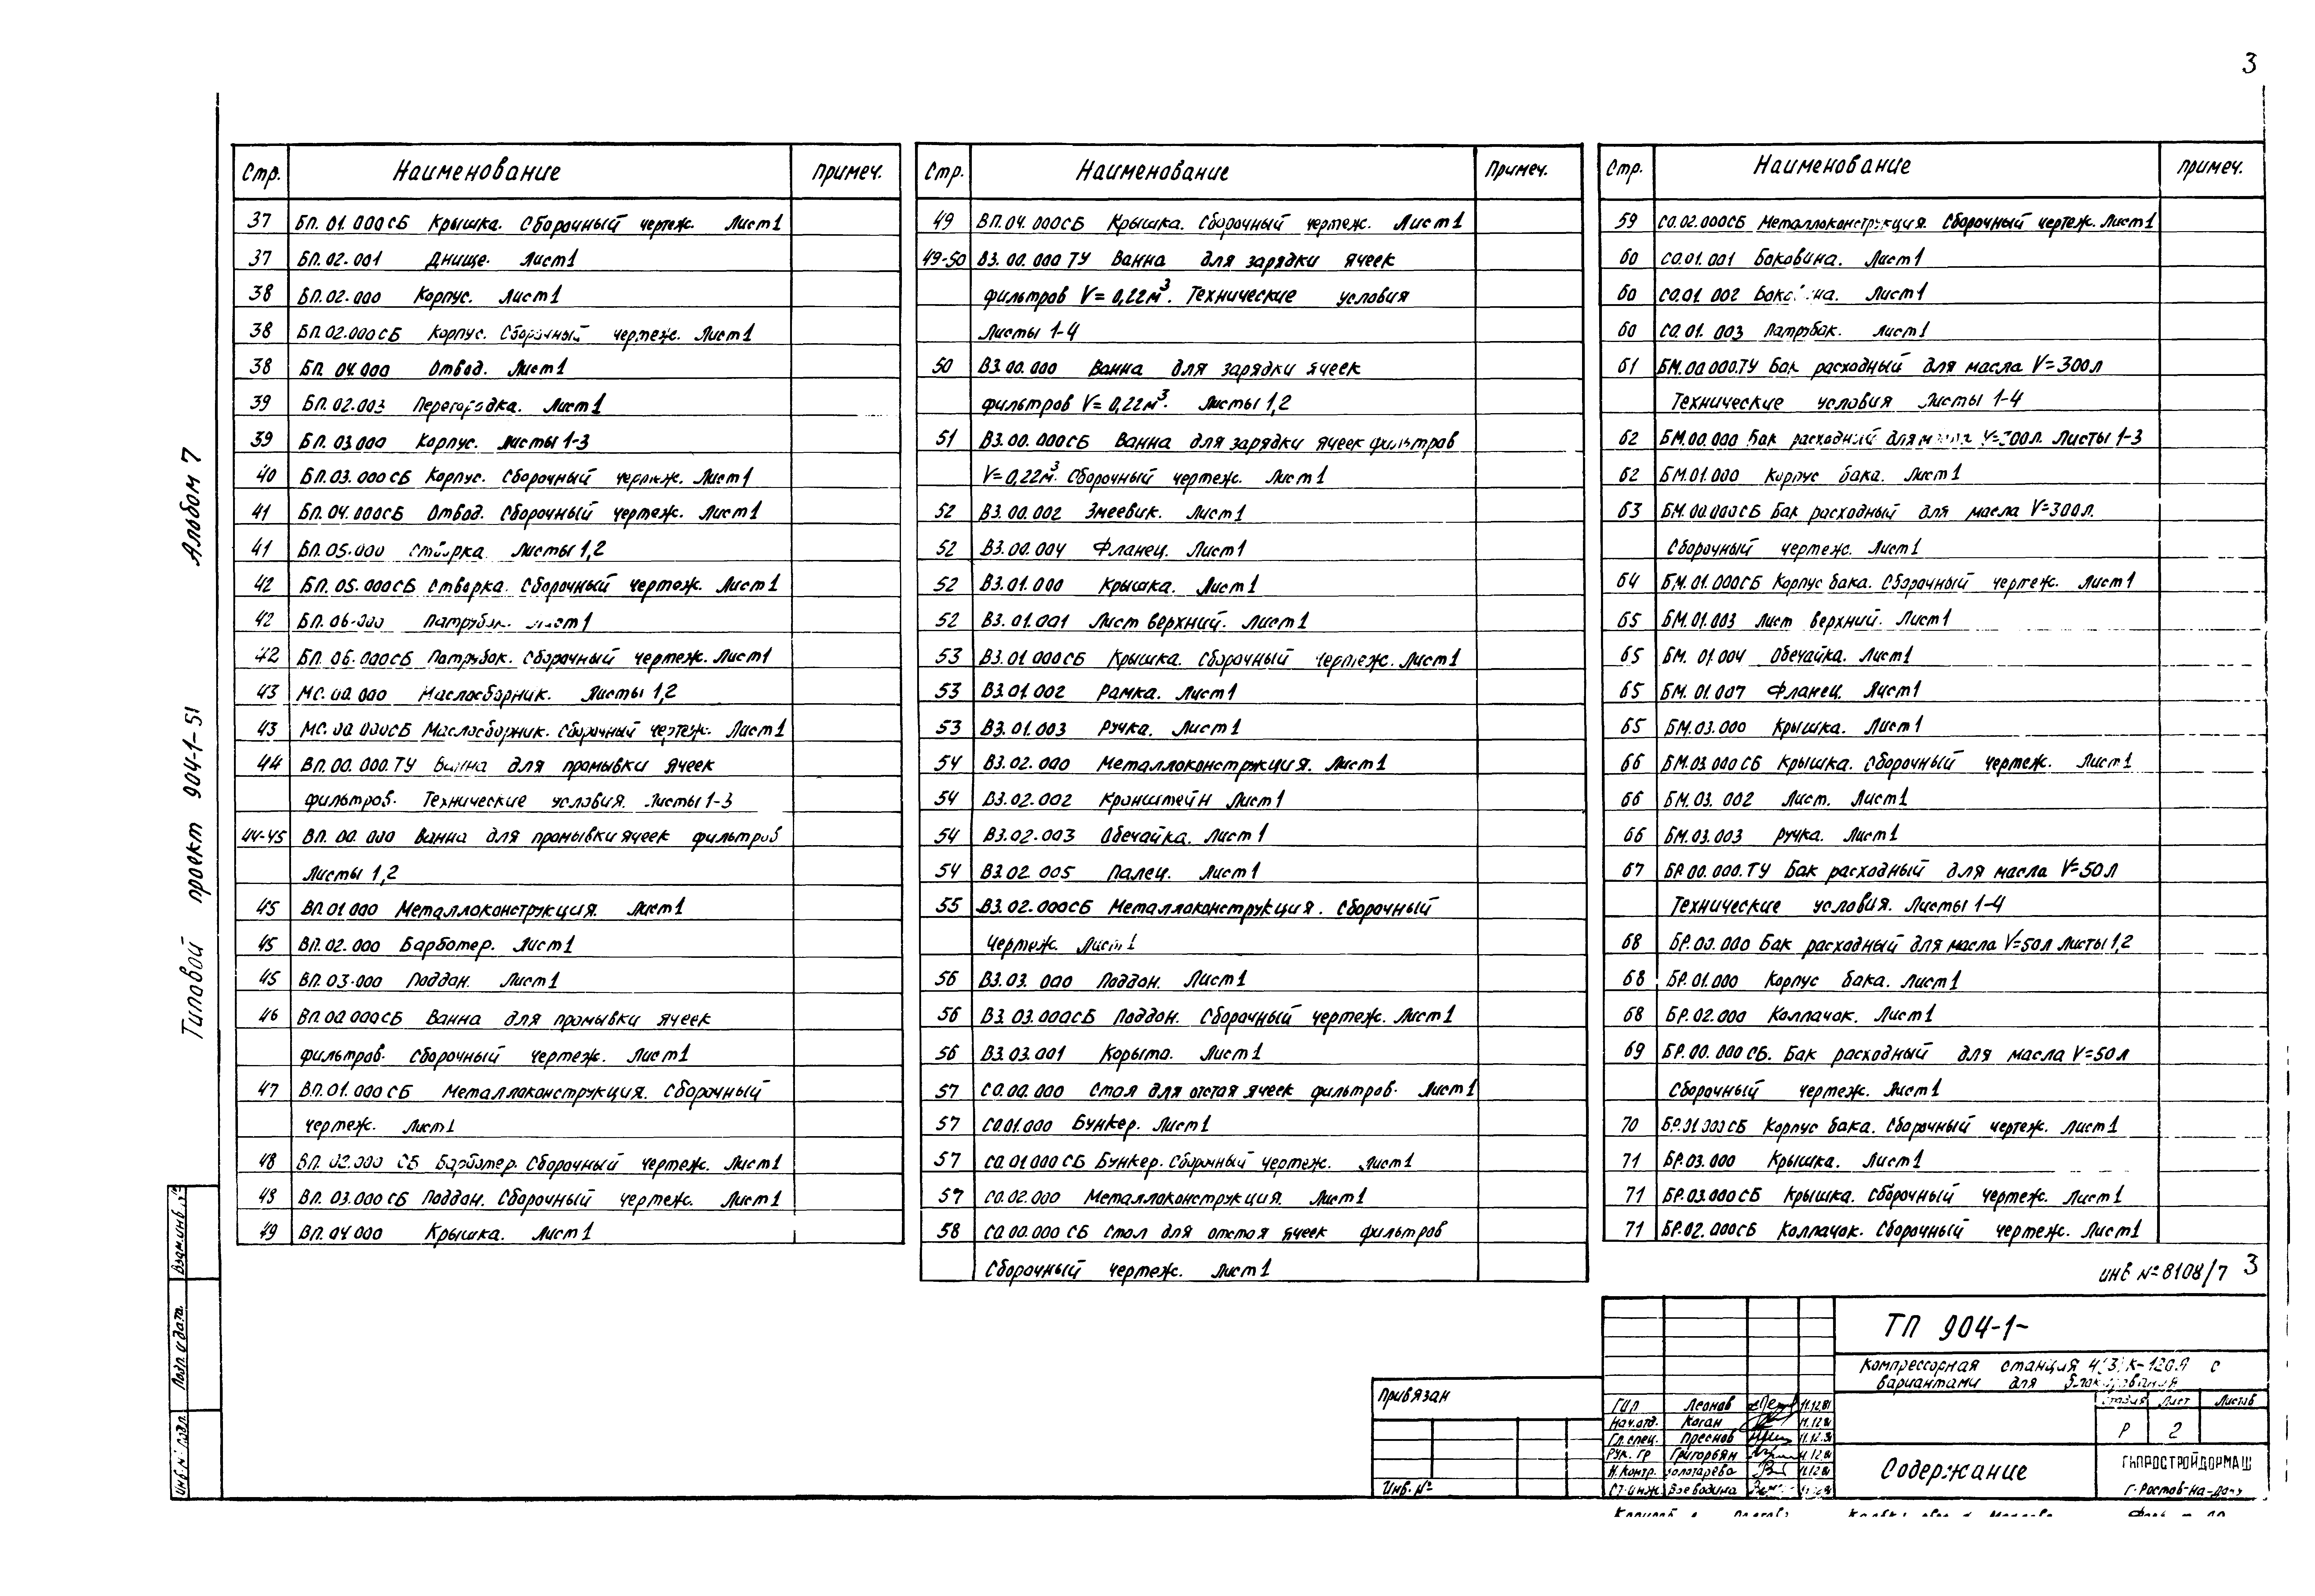 3
Альбом 7
Типовой проект 904-1-51
Стр. Наименование Примеч.
37 БП.01.000СБ Крышка. Сборочный чертеж. Лист1
37 БП.02.001 Днище. Лист1
38 БП.02.000 Корпус. Лист1
38 БП.02.000СБ Корпус. Сборочный чертеж. Лист1
38 БП.04.000 Отвод. Лист1
39 БП.02.003 Перегородка. Лист1
39 БП.03.000 Корпус. Листы 1-3
40 БП.03.000СБ Корпус. Сборочный чертеж. Лист1
41 БП.04.000СБ Отвод. Сборочный чертеж. Лист1
41 БП.05.000 Створка. Листы 1,2
42 БП.05.000СБ Створка. Сборочный чертеж. Лист1
42 БП.06.000 Патрубок. Лист1
42 БП.06.000СБ Патрубок. Сборочный чертеж. Лист1
43 МС.00.000 Маслосборник. Листы 1,2
43 МС.00.000СБ Маслосборник. Сборочный чертеж. Лист1
44 ВП.00.000.ТУ Ванна для промывки ячеек
фильтров. Технические условия. Листы 1-3
44-45 ВП.00.000 Ванна для промывки ячеек фильтров
Листы 1,2
45 ВП.01.000 Металлоконструкция. Лист1
45 ВП.02.000 Барботер. Лист1
45 ВП.03.000 Поддон. Лист1
46 ВП.00.000СБ Ванна для промывки ячеек
фильтров. Сборочный чертеж. Лист1
47 ВП.01.000СБ Металлоконструкция. Сборочный
чертеж. Лист1
48 ВП.02.000 СБ Барботер. Сборочный чертеж. Лист1
48 ВП.03.000СБ Поддон. Сборочный чертеж. Лист1
49 ВП.04.000 Крышка. Лист1
Стр. Наименование Примеч.
49 ВП.04.000СБ Крышка. Сборочный чертеж. Лист1
49-50 ВЗ.00.000 ТУ Ванна для зарядки ячеек
фильтров V=0,22м³. Технические условия
Листы 1-4
50 ВЗ.00.000 Ванна для зарядки ячеек
фильтров V=0,22м³. Листы 1,2
51 ВЗ.00.000СБ Ванна для зарядки ячеек фильтров
V=0,22м³. Сборочный чертеж. Лист1
52 ВЗ.00.002 Змеевик. Лист1
52 ВЗ.00.004 Фланец. Лист1
52 ВЗ.01.000 Крышка. Лист1
52 ВЗ.01.001 Лист верхний. Лист1
53 ВЗ.01.000СБ Крышка. Сборочный чертеж. Лист1
53 ВЗ.01.002 Рамка. Лист1
53 ВЗ.01.003 Ручка. Лист1
54 ВЗ.02.000 Металлоконструкция. Лист1
54 ВЗ.02.002 Кронштейн Лист1
54 ВЗ.02.003 Обечайка. Лист1
54 ВЗ.02.005 Палец. Лист1
55 ВЗ.02.000СБ Металлоконструкция. Сборочный
чертеж. Лист1
56 ВЗ.03.000 Поддон. Лист1
56 ВЗ.03.000СБ Поддон. Сборочный чертеж. Лист1
56 ВЗ.03.001 Корыто. Лист1
57 СО.00.000 Стол для отстоя ячеек фильтров. Лист1
57 СО.01.000 Бункер. Лист1
57 СО.01.000 СБ Бункер. Сборочный чертеж. Лист1
57 СО.02.000 Металлоконструкция. Лист1
58 СО.00.000 СБ Стол для отстоя ячеек фильтров
Сборочный чертеж. Лист1
Стр. Наименование Примеч.
59 СО.02.000СБ Металлоконструкция. Сборочный чертеж. Лист1
60 СО.01.001 Боковина. Лист1
60 СО.01.002 Боковина. Лист1
60 СО.01.003 Патрубок. Лист1
61 БМ.00.000.ТУ Бак расходный для масла V=300л
Технические условия Листы 1-4
62 БМ.00.000 Бак расходный для масла V=300л. Листы 1-3
62 БМ.01.000 Корпус бака. Лист1
63 БМ.00.000СБ Бак расходный для масла V=300л.
Сборочный чертеж. Лист1
64 БМ.01.000СБ Корпус бака. Сборочный чертеж. Лист1
65 БМ.01.003 Лист верхний. Лист1
65 БМ.01.004 Обечайка. Лист1
65 БМ.01.007 Фланец. Лист1
65 БМ.03.000 Крышка. Лист1
66 БМ.03.000СБ Крышка. Сборочный чертеж. Лист1
66 БМ.03.002 Лист. Лист1
66 БМ.03.003 Ручка. Лист1
67 БР.00.000.ТУ Бак расходный для масла V=50л
Технические условия. Листы 1-4
68 БР.00.000 Бак расходный для масла V=50л Листы 1,2
68 БР.01.000 Корпус бака. Лист1
68 БР.02.000 Колпачок. Лист1
69 БР.00.000 СБ. Бак расходный для масла V=50л
Сборочный чертеж. Лист1
70 БР.01.000СБ Корпус бака. Сборочный чертеж. Лист1
71 БР.03.000 Крышка. Лист1
71 БР.03.000СБ Крышка. Сборочный чертеж. Лист1
71 БР.02.000СБ Колпачок. Сборочный чертеж. Лист1
инв №8108/7 3
Взам.инв.№
Подп. и дата.
Инв.№ подл.
Привязан
Инв.№
ТП 904-1-
Компрессорная станция 4(3)К-120А с
вариантами для блокирования
Стадия Лист Листов
Р 2
Содержание
ГИПРОСТРОЙДОРМАШ
г. Ростов-на-Дону
ГИП Леонов 11.12.81
Нач.отд. Коган 11.12.81
Гл.спец. Преснов 11.12.81
Рук. гр Григорьян 11.12.81
Н.контр. Золотарева 11.12.81
Ст.инж Воеводина